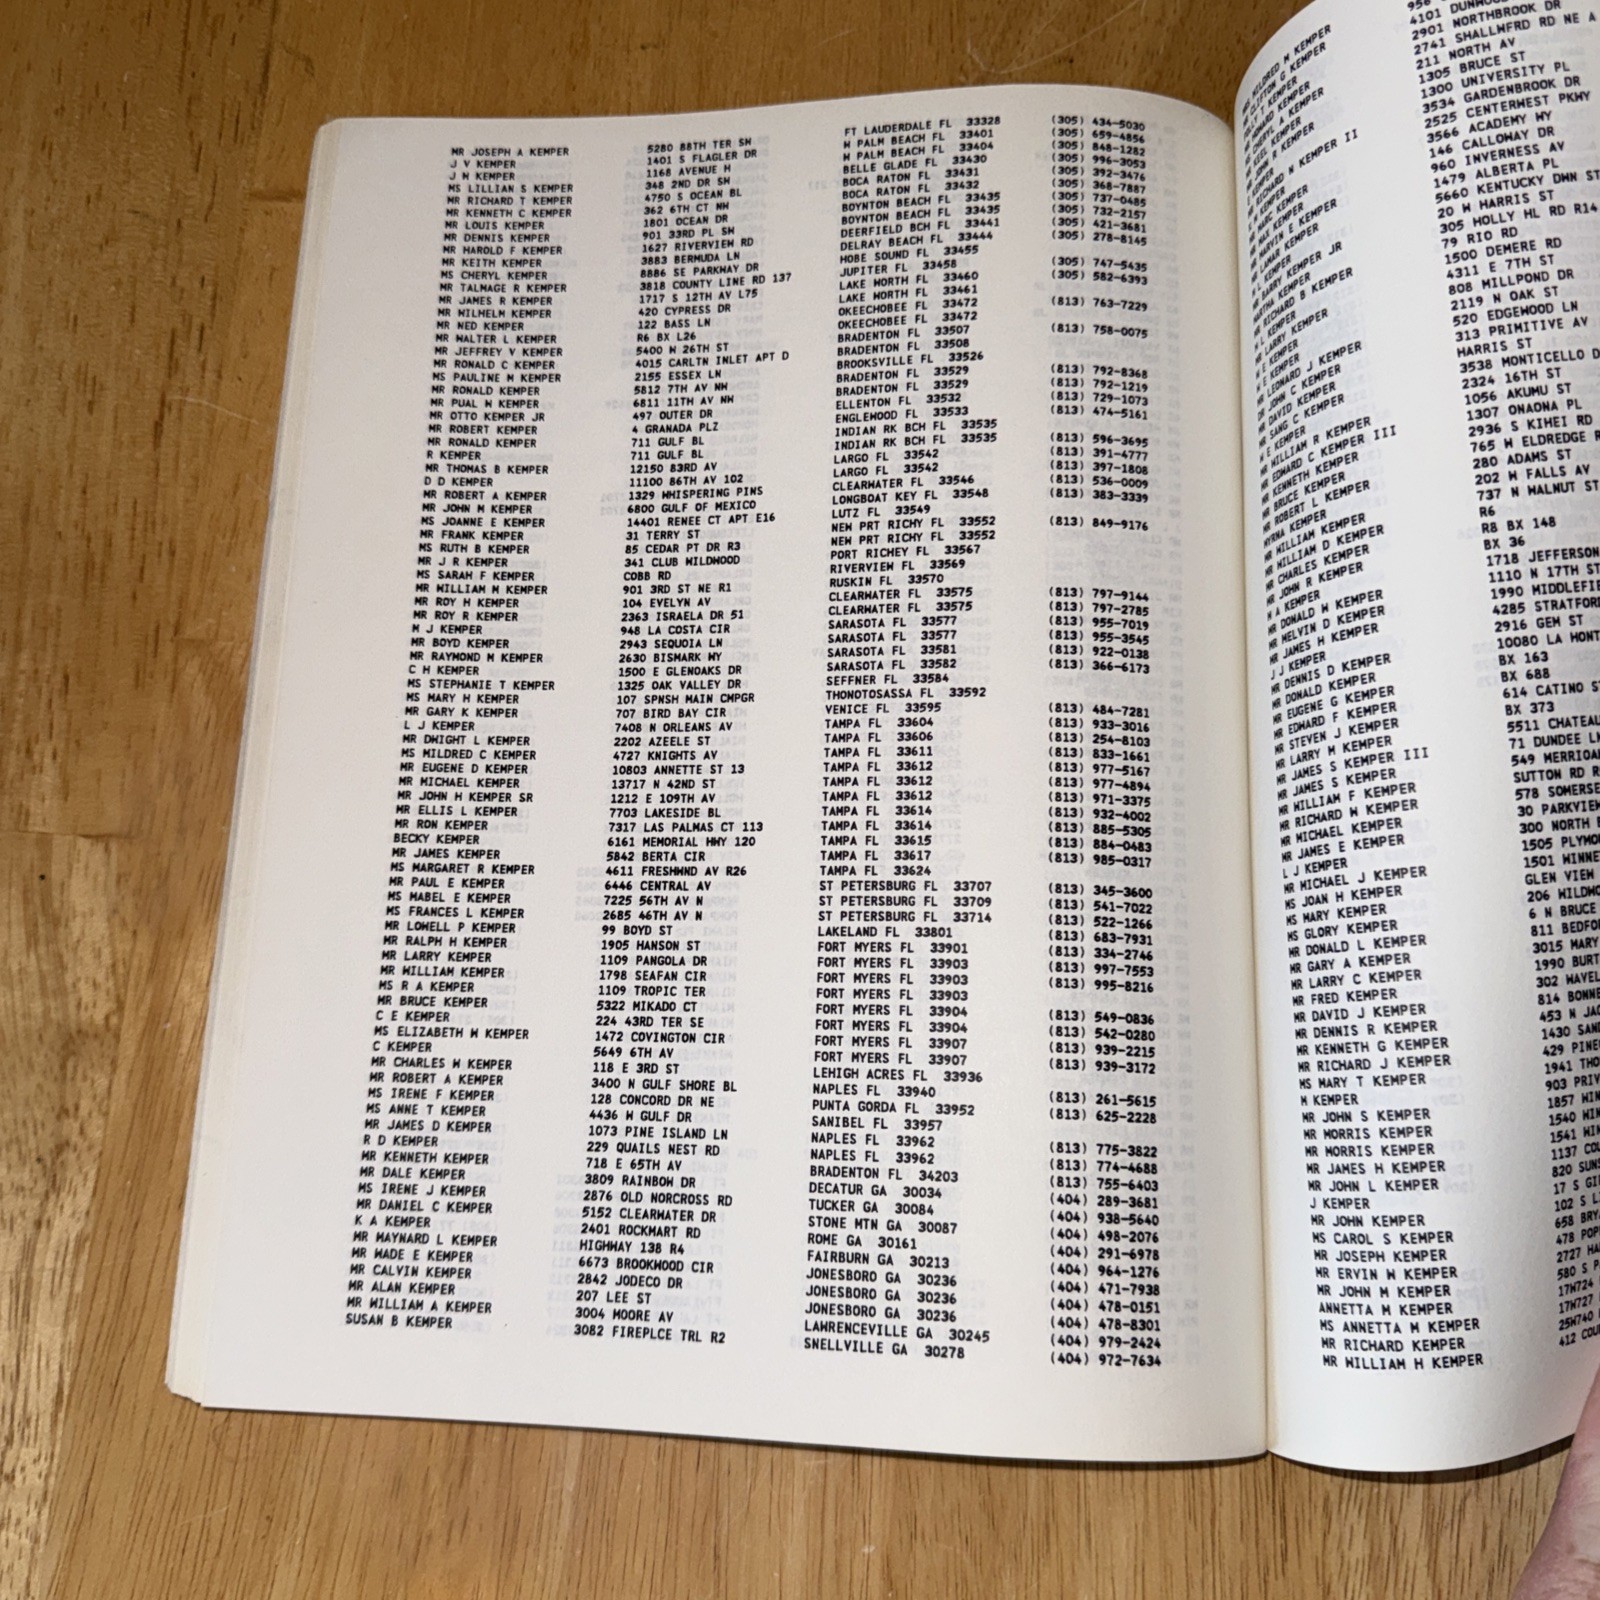 MR JOSEPH A KEMPER
J V KEMPER
J W KEMPER
MS LILLIAN S KEMPER
MR RICHARD T KEMPER
MR KENNETH C KEMPER
MR LOUIS KEMPER
MR DENNIS KEMPER
MR HAROLD F KEMPER
MR KEITH KEMPER
MS CHERYL KEMPER
MR TALMAGE R KEMPER
MR JAMES R KEMPER
MR WILHELM KEMPER
MR NED KEMPER
MR WALTER L KEMPER
MR JEFFREY V KEMPER
MR RONALD C KEMPER
MS PAULINE M KEMPER
MR RONALD KEMPER
MR PUAL W KEMPER
MR OTTO KEMPER JR
MR ROBERT KEMPER
MR RONALD KEMPER
R KEMPER
MR THOMAS B KEMPER
D D KEMPER
MR ROBERT A KEMPER
MR JOHN M KEMPER
MS JOANNE E KEMPER
MR FRANK KEMPER
MS RUTH B KEMPER
MR J R KEMPER
MS SARAH F KEMPER
MR WILLIAM M KEMPER
MR ROY H KEMPER
MR ROY R KEMPER
M J KEMPER
MR BOYD KEMPER
MR RAYMOND M KEMPER
C H KEMPER
MS STEPHANIE T KEMPER
MS MARY H KEMPER
MR GARY K KEMPER
L J KEMPER
MR DWIGHT L KEMPER
MS MILDRED C KEMPER
MR EUGENE D KEMPER
MR MICHAEL KEMPER
MR JOHN H KEMPER SR
MR ELLIS L KEMPER
MR RON KEMPER
BECKY KEMPER
MR JAMES KEMPER
MS MARGARET R KEMPER
MR PAUL E KEMPER
MS MABEL E KEMPER
MS FRANCES L KEMPER
MR LOWELL P KEMPER
MR RALPH H KEMPER
MR LARRY KEMPER
MR WILLIAM KEMPER
MS R A KEMPER
MR BRUCE KEMPER
C E KEMPER
MS ELIZABETH W KEMPER
C KEMPER
MR CHARLES W KEMPER
MR ROBERT A KEMPER
MS IRENE F KEMPER
MS ANNE T KEMPER
MR JAMES D KEMPER
R D KEMPER
MR KENNETH KEMPER
MR DALE KEMPER
MS IRENE J KEMPER
MR DANIEL C KEMPER
K A KEMPER
MR MAYNARD L KEMPER
MR WADE E KEMPER
MR CALVIN KEMPER
MR ALAN KEMPER
MR WILLIAM A KEMPER
SUSAN B KEMPER
5280 88TH TER SW
1401 S FLAGLER DR
1168 AVENUE H
348 2ND DR SW
4750 S OCEAN BL
362 6TH CT NW
1801 OCEAN DR
901 33RD PL SW
1627 RIVERVIEW RD
3883 BERMUDA LN
8886 SE PARKWAY DR
3818 COUNTY LINE RD 137
1717 S 12TH AV L75
420 CYPRESS DR
122 BASS LN
R6 BX L26
5400 W 26TH ST
4015 CARLTN INLET APT D
2155 ESSEX LN
5812 7TH AV NW
6811 11TH AV NW
497 OUTER DR
4 GRANADA PLZ
711 GULF BL
711 GULF BL
12150 83RD AV
11100 86TH AV 102
1329 WHISPERING PINS
6800 GULF OF MEXICO
14401 RENEE CT APT E16
31 TERRY ST
85 CEDAR PT DR R3
341 CLUB WILDWOOD
COBB RD
901 3RD ST NE R1
104 EVELYN AV
2363 ISRAELA DR 51
948 LA COSTA CIR
2943 SEQUOIA LN
2630 BISMARK WY
1500 E GLENOAKS DR
1325 OAK VALLEY DR
107 SPNSH MAIN CMPGR
707 BIRD BAY CIR
7408 N ORLEANS AV
2202 AZEELE ST
4727 KNIGHTS AV
10803 ANNETTE ST 13
13717 N 42ND ST
1212 E 109TH AV
7703 LAKESIDE BL
7317 LAS PALMAS CT 113
6161 MEMORIAL HWY 120
5842 BERTA CIR
4611 FRESHWND AV R26
6446 CENTRAL AV
7225 56TH AV N
2685 46TH AV N
99 BOYD ST
1905 HANSON ST
1109 PANGOLA DR
1798 SEAFAN CIR
1109 TROPIC TER
5322 MIKADO CT
224 43RD TER SE
1472 COVINGTON CIR
5649 6TH AV
118 E 3RD ST
3400 N GULF SHORE BL
128 CONCORD DR NE
4436 W GULF DR
1073 PINE ISLAND LN
229 QUAILS NEST RD
718 E 65TH AV
3809 RAINBOW DR
2876 OLD NORCROSS RD
5152 CLEARWATER DR
2401 ROCKMART RD
HIGHWAY 138 R4
6673 BROOKWOOD CIR
2842 JODECO DR
207 LEE ST
3004 MOORE AV
3082 FIREPLCE TRL R2
FT LAUDERDALE FL 33328
W PALM BEACH FL 33401
W PALM BEACH FL 33404
BELLE GLADE FL 33430
BOCA RATON FL 33431
BOCA RATON FL 33432
BOYNTON BEACH FL 33435
BOYNTON BEACH FL 33435
DEERFIELD BCH FL 33441
DELRAY BEACH FL 33444
HOBE SOUND FL 33455
JUPITER FL 33458
LAKE WORTH FL 33460
LAKE WORTH FL 33461
OKEECHOBEE FL 33472
OKEECHOBEE FL 33472
BRADENTON FL 33507
BRADENTON FL 33508
BROOKSVILLE FL 33526
BRADENTON FL 33529
BRADENTON FL 33529
ELLENTON FL 33532
ENGLEWOOD FL 33533
INDIAN RK BCH FL 33535
INDIAN RK BCH FL 33535
LARGO FL 33542
LARGO FL 33542
CLEARWATER FL 33546
LONGBOAT KEY FL 33548
LUTZ FL 33549
NEW PRT RICHY FL 33552
NEW PRT RICHY FL 33552
PORT RICHEY FL 33567
RIVERVIEW FL 33569
RUSKIN FL 33570
CLEARWATER FL 33575
CLEARWATER FL 33575
SARASOTA FL 33577
SARASOTA FL 33577
SARASOTA FL 33581
SARASOTA FL 33582
SEFFNER FL 33584
THONOTOSASSA FL 33592
VENICE FL 33595
TAMPA FL 33604
TAMPA FL 33606
TAMPA FL 33611
TAMPA FL 33612
TAMPA FL 33612
TAMPA FL 33612
TAMPA FL 33614
TAMPA FL 33614
TAMPA FL 33615
TAMPA FL 33617
TAMPA FL 33624
ST PETERSBURG FL 33707
ST PETERSBURG FL 33709
ST PETERSBURG FL 33714
LAKELAND FL 33801
FORT MYERS FL 33901
FORT MYERS FL 33903
FORT MYERS FL 33903
FORT MYERS FL 33903
FORT MYERS FL 33904
FORT MYERS FL 33904
FORT MYERS FL 33907
FORT MYERS FL 33907
LEHIGH ACRES FL 33936
NAPLES FL 33940
PUNTA GORDA FL 33952
SANIBEL FL 33957
NAPLES FL 33962
NAPLES FL 33962
BRADENTON FL 34203
DECATUR GA 30034
TUCKER GA 30084
STONE MTN GA 30087
ROME GA 30161
FAIRBURN GA 30213
JONESBORO GA 30236
JONESBORO GA 30236
JONESBORO GA 30236
LAWRENCEVILLE GA 30245
SNELLVILLE GA 30278
(305) 434-5030
(305) 659-4856
(305) 848-1282
(305) 996-3053
(305) 392-3476
(305) 368-7887
(305) 737-0485
(305) 732-2157
(305) 421-3681
(305) 278-8145
(305) 747-5435
(305) 582-6393
(813) 763-7229
(813) 758-0075
(813) 792-8368
(813) 792-1219
(813) 729-1073
(813) 474-5161
(813) 596-3695
(813) 391-4777
(813) 397-1808
(813) 536-0009
(813) 383-3339
(813) 849-9176
(813) 797-9144
(813) 797-2785
(813) 955-7019
(813) 955-3545
(813) 922-0138
(813) 366-6173
(813) 484-7281
(813) 933-3016
(813) 254-8103
(813) 833-1661
(813) 977-5167
(813) 977-4894
(813) 971-3375
(813) 932-4002
(813) 885-5305
(813) 884-0483
(813) 985-0317
(813) 345-3600
(813) 541-7022
(813) 522-1266
(813) 683-7931
(813) 334-2746
(813) 997-7553
(813) 995-8216
(813) 549-0836
(813) 542-0280
(813) 939-2215
(813) 939-3172
(813) 261-5615
(813) 625-2228
(813) 775-3822
(813) 774-4688
(813) 755-6403
(404) 289-3681
(404) 938-5640
(404) 498-2076
(404) 291-6978
(404) 964-1276
(404) 471-7938
(404) 478-0151
(404) 478-8301
(404) 979-2424
(404) 972-7634
MR RICHARD N KEMPER II
MR LARRY KEMPER
MR LEONARD J KEMPER
DR JOHN C KEMPER
MR DAVID KEMPER
MR SANG C KEMPER
W E KEMPER
MR WILLIAM R KEMPER
MR EDWARD C KEMPER III
MR KENNETH KEMPER
MR BRUCE KEMPER
MR ROBERT L KEMPER
MYRNA KEMPER
MR WILLIAM KEMPER
MR WILLIAM D KEMPER
MR CHARLES KEMPER
MR JOHN R KEMPER
W A KEMPER
MR DONALD W KEMPER
MR MELVIN D KEMPER
MR JAMES H KEMPER
J J KEMPER
MR DENNIS D KEMPER
MR DONALD KEMPER
MR EUGENE G KEMPER
MR EDWARD F KEMPER
MR STEVEN J KEMPER
MR LARRY M KEMPER
MR JAMES S KEMPER III
MR JAMES S KEMPER
MR WILLIAM F KEMPER
MR RICHARD W KEMPER
MR MICHAEL KEMPER
MR JAMES E KEMPER
L J KEMPER
MR MICHAEL J KEMPER
MS JOAN H KEMPER
MS MARY KEMPER
MS GLORY KEMPER
MR DONALD L KEMPER
MR GARY A KEMPER
MR LARRY C KEMPER
MR FRED KEMPER
MR DAVID J KEMPER
MR DENNIS R KEMPER
MR KENNETH G KEMPER
MR RICHARD J KEMPER
MS MARY T KEMPER
M KEMPER
MR JOHN S KEMPER
MR MORRIS KEMPER
MR MORRIS KEMPER
MR JAMES H KEMPER
MR JOHN L KEMPER
J KEMPER
MR JOHN KEMPER
MS CAROL S KEMPER
MR JOSEPH KEMPER
MR ERVIN W KEMPER
MR JOHN M KEMPER
ANNETTA M KEMPER
MS ANNETTA M KEMPER
MR RICHARD KEMPER
MR WILLIAM H KEMPER
2901 NORTHBROOK DR
2741 SHALLWFRD RD NE A
211 NORTH AV
1305 BRUCE ST
1300 UNIVERSITY PL
3534 GARDENBROOK DR
2525 CENTERWEST PKWY
3566 ACADEMY WY
146 CALLOWAY DR
960 INVERNESS AV
1479 ALBERTA PL
5660 KENTUCKY DWN ST
20 W HARRIS ST
305 HOLLY HL RD R14
79 RIO RD
1500 DEMERE RD
4311 E 7TH ST
808 MILLPOND DR
2119 N OAK ST
520 EDGEWOOD LN
313 PRIMITIVE AV
HARRIS ST
3538 MONTICELLO D
2324 16TH ST
1056 AKUMU ST
1307 ONAONA PL
2936 S KIHEI RD
765 W ELDREDGE R
280 ADAMS ST
202 W FALLS AV
737 N WALNUT ST
R6
R8 BX 148
BX 36
1718 JEFFERSON
1110 N 17TH ST
1990 MIDDLEFIE
4285 STRATFORD
2916 GEM ST
10080 LA MONT
BX 163
BX 688
614 CATINO ST
BX 373
5511 CHATEAU
71 DUNDEE LN
549 MERRIOAK
SUTTON RD R
578 SOMERSE
30 PARKVIEW
300 NORTH
1505 PLYMO
1501 WINNE
GLEN VIEW
206 WILDWO
6 N BRUCE
811 BEDFO
3015 MARY
1990 BURT
302 WAVEL
814 BONNE
453 N JAC
1430 SAN
429 PINE
1941 THO
903 PRIV
1857 WIN
1540 WIN
1541 WIN
1137 COU
820 SUNS
17 S GI
102 S L
658 BRY
478 POP
2727 HA
580 S P
17W724
17W727
25W740
412 COU